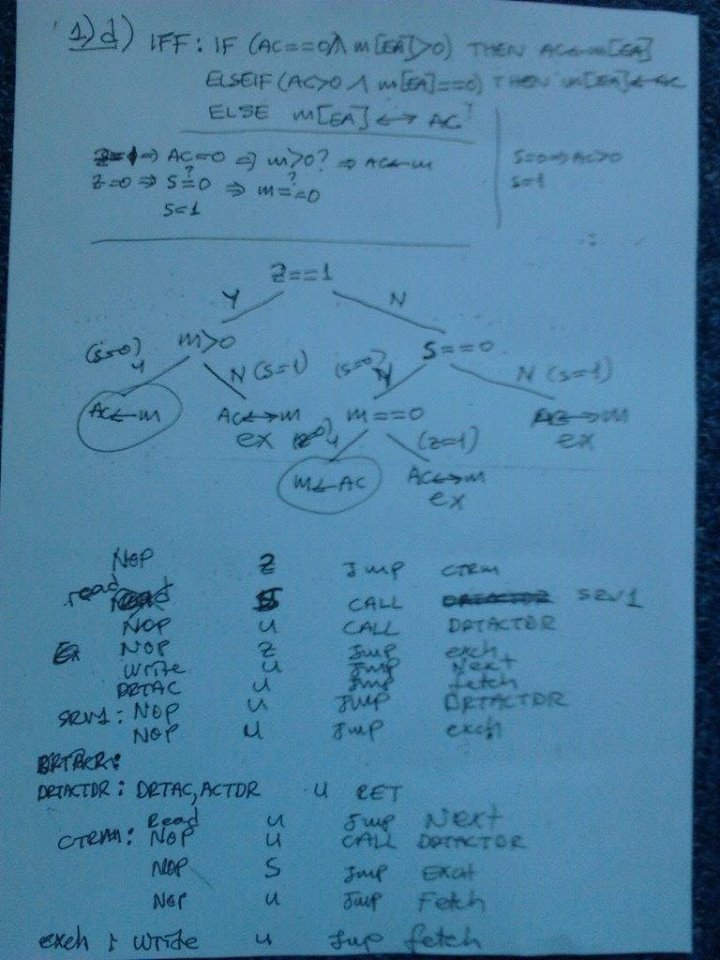 1)d) IFF: IF (AC==0 ∧ m[EA]>0) THEN AC←m[EA]
ELSEIF (AC>0 ∧ m[EA]==0) THEN m[EA]←AC
ELSE m[EA]↔AC
Z=1 ⇒ AC=0 ⇒ m>0? ⇒ AC←m
Z=0 ⇒ S=0 ? ⇒ m==0 ?
S=1
S=0⇒AC>0
S=1
Z==1
Y N
(S=0) Y m>0 N (S=1) (S=0) Y S==0 N (S=1)
AC←m AC↔m m==0 AC↔m
ex Y (Z=1) ex
m←AC AC↔m
ex
NOP Z Jmp CTRM
read CALL SRV1
NOP U CALL DRTACTDR
NOP Z Jmp exch
Write U Jmp Next
DRTAC U Jmp fetch
SRV1: NOP U Jmp DRTACTDR
NOP U Jmp exch
DRTACTDR: DRTAC, ACTDR U RET
Read U Jmp Next
CTRM: NOP U CALL DRTACTDR
NOP S Jmp Exch
NOP U Jmp Fetch
exch: Write U Jmp fetch